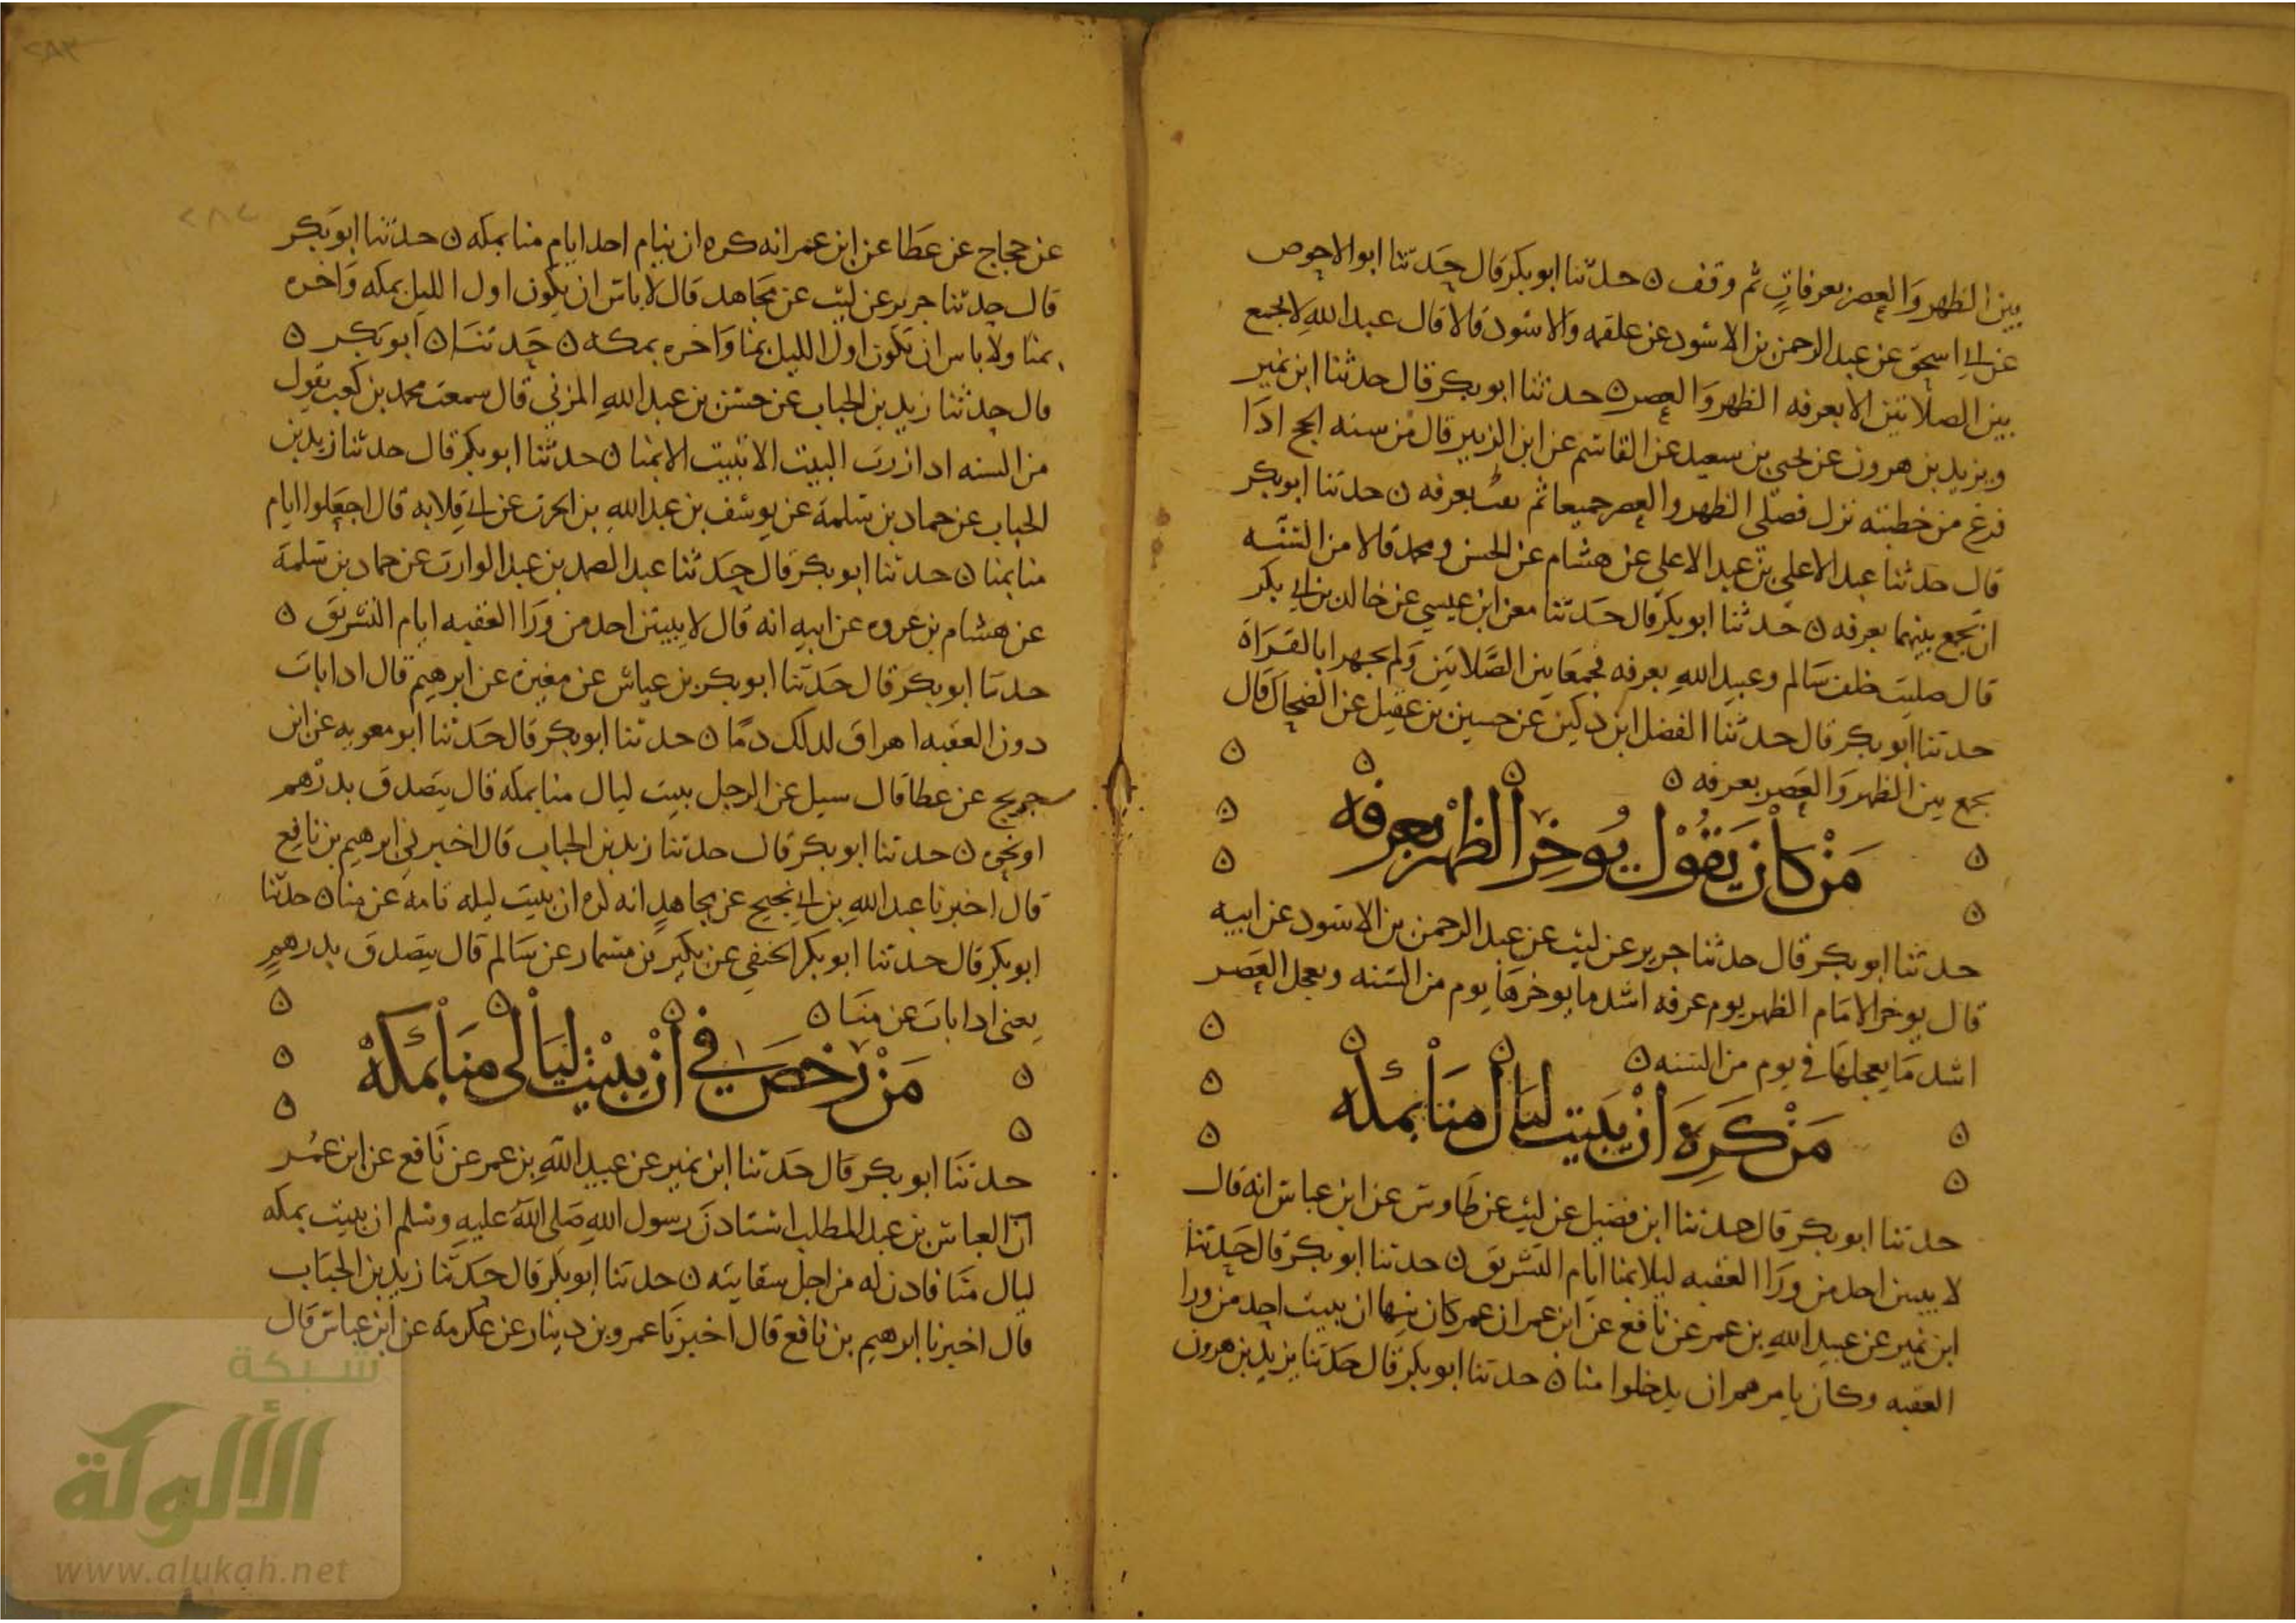 بين الظهر والعصر بعرفات ثم وقف ن حدثنا ابو بكر قال حدثنا ابو الاحوص
عن ابي اسحق عن عبد الرحمن بن الاسود عن علقمه والاسود قالا قال عبد الله لا يجمع
بين الصلاتين الا بعرفه الظهر والعصر ن حدثنا ابو بكر قال حدثنا ابن نمير
ويزيد بن هرون عن يحيى بن سعيد عن القاسم عن ابن الزبير قال من سنه الحج اذا
فرغ من خطبته نزل فصلى الظهر والعصر جميعا ثم بعرفه ن حدثنا ابو بكر
قال حدثنا عبد الاعلى بن عبد الاعلى عن هشام عن الحسن ومحمد قالا من السنه
ان يجمع بينهما بعرفه ن حدثنا ابو بكر قال حدثنا معن ابن عيسي عن خالد بن ابي بكر
قال صليت خلف سالم وعبيد الله بعرفه فجمعا بين الصلاتين ولم يجهرا بالقراة
حدثنا ابو بكر قال حدثنا الفضل ابن دكين عن حسين بن عقيل عن الضحاك قال
يجمع بين الظهر والعصر بعرفه ن
من كان يقول يوخر الظهر بعرفه
حدثنا ابو بكر قال حدثنا جرير عن ليث عن عبد الرحمن بن الاسود عن ابيه
قال يوخر الامام الظهر يوم عرفه اشد ما يوخرها يوم من السنه ويعجل العصر
اشد ما يعجلها في يوم من السنه ن
من كره ان يبيت ليال منا بمكه
حدثنا ابو بكر قال حدثنا ابن فضيل عن ليث عن طاوس عن ابن عباس انه قال
لا يبيتن احد من ورا العقبه ليلا بمنا ايام التشريق ن حدثنا ابو بكر قال حدثنا
ابن نمير عن عبيد الله بن عمر عن نافع عن ابن عمر ان عمر كان ينها ان يبيت احد من ورا
العقبه وكان يامرهم ان يدخلوا منا ن حدثنا ابو بكر قال حدثنا يزيد بن هرون
عن حجاج عن عطا عن ابن عمر انه كره ان ينام احد ايام منا بمكه ن حدثنا ابو بكر
قال حدثنا جرير عن ليث عن مجاهد قال لا باس ان يكون اول الليل بمكه واخره
بمنا ولا باس ان تكون اول الليل بمنا واخره بمكه ن حدثنا ن ابو بكر ن
قال حدثنا زيد بن الحباب عن بن عبد الله المزني قال سمعت محمد بن كعب يقول
من السنه اذا زرت البيت الا تبيت الا بمنا ن حدثنا ابو بكر قال حدثنا زيد بن
الحباب عن حماد بن سلمة عن يوسف بن عبد الله بن الحرث عن ابي قلابه قال اجعلوا ايام
منا بمنا ن حدثنا ابو بكر قال حدثنا عبد الصمد بن عبد الوارث عن حماد بن سلمة
عن هشام بن عروه عن ابيه انه قال لا يبيتن احد من ورا العقبه ايام التشريق ن
حدثنا ابو بكر قال حدثنا ابو بكر بن عياش عن مغيرة عن ابرهيم قال اذا بات
دون العقبه اهراق لذلك دما ن حدثنا ابو بكر قال حدثنا ابو معويه عن ابن
جريج عن عطا قال سيل عن الرجل يبيت ليال منا بمكه قال يتصدق بدرهم
او نحوه ن حدثنا ابو بكر قال حدثنا زيد بن الحباب قال اخبرني ابرهيم بن نافع
قال اخبرنا عبد الله بن ابي نجيح عن مجاهد انه كره ان يبيت ليله تامه عن منا ن حدثنا
ابو بكر قال حدثنا ابو بكر الحنفي عن بكير بن مسمار عن سالم قال يتصدق بدرهم
يعني اذا بات عن منا ن
من رخص في ان يبيت ليالي منا بمكة
حدثنا ابو بكر قال حدثنا ابن نمير عن عبيد الله بن عمر عن نافع عن ابن عمر
ان العباس بن عبد المطلب استاذن رسول الله صلى الله عليه وسلم ان يبيت بمكه
ليال منا فاذن له من اجل سقايته ن حدثنا ابو بكر قال حدثنا زيد بن الحباب
قال اخبرنا ابرهيم بن نافع قال اخبرنا عمرو بن دينار عن عكرمة عن ابن عباس قال
شبكة
الألوكة
www.alukah.net